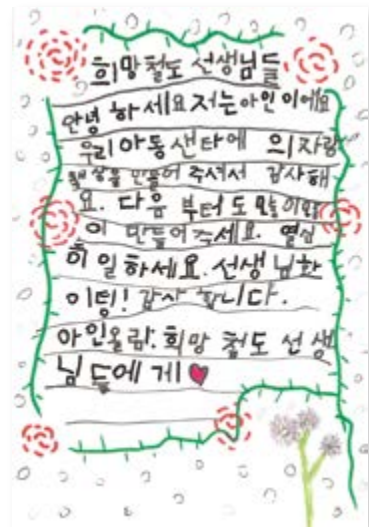 희망철도 선생님들
안녕 하세요 저는 아인이에요
우리 아동 센타에 의자랑
책상을 만들어 주셔서 감사해
요. 다음 부터도
이 만들어주세요. 열심
히 일하세요. 선생님 화
이팅! 감사 합니다.
아인올림. 희망 철도 선생
님 들에게